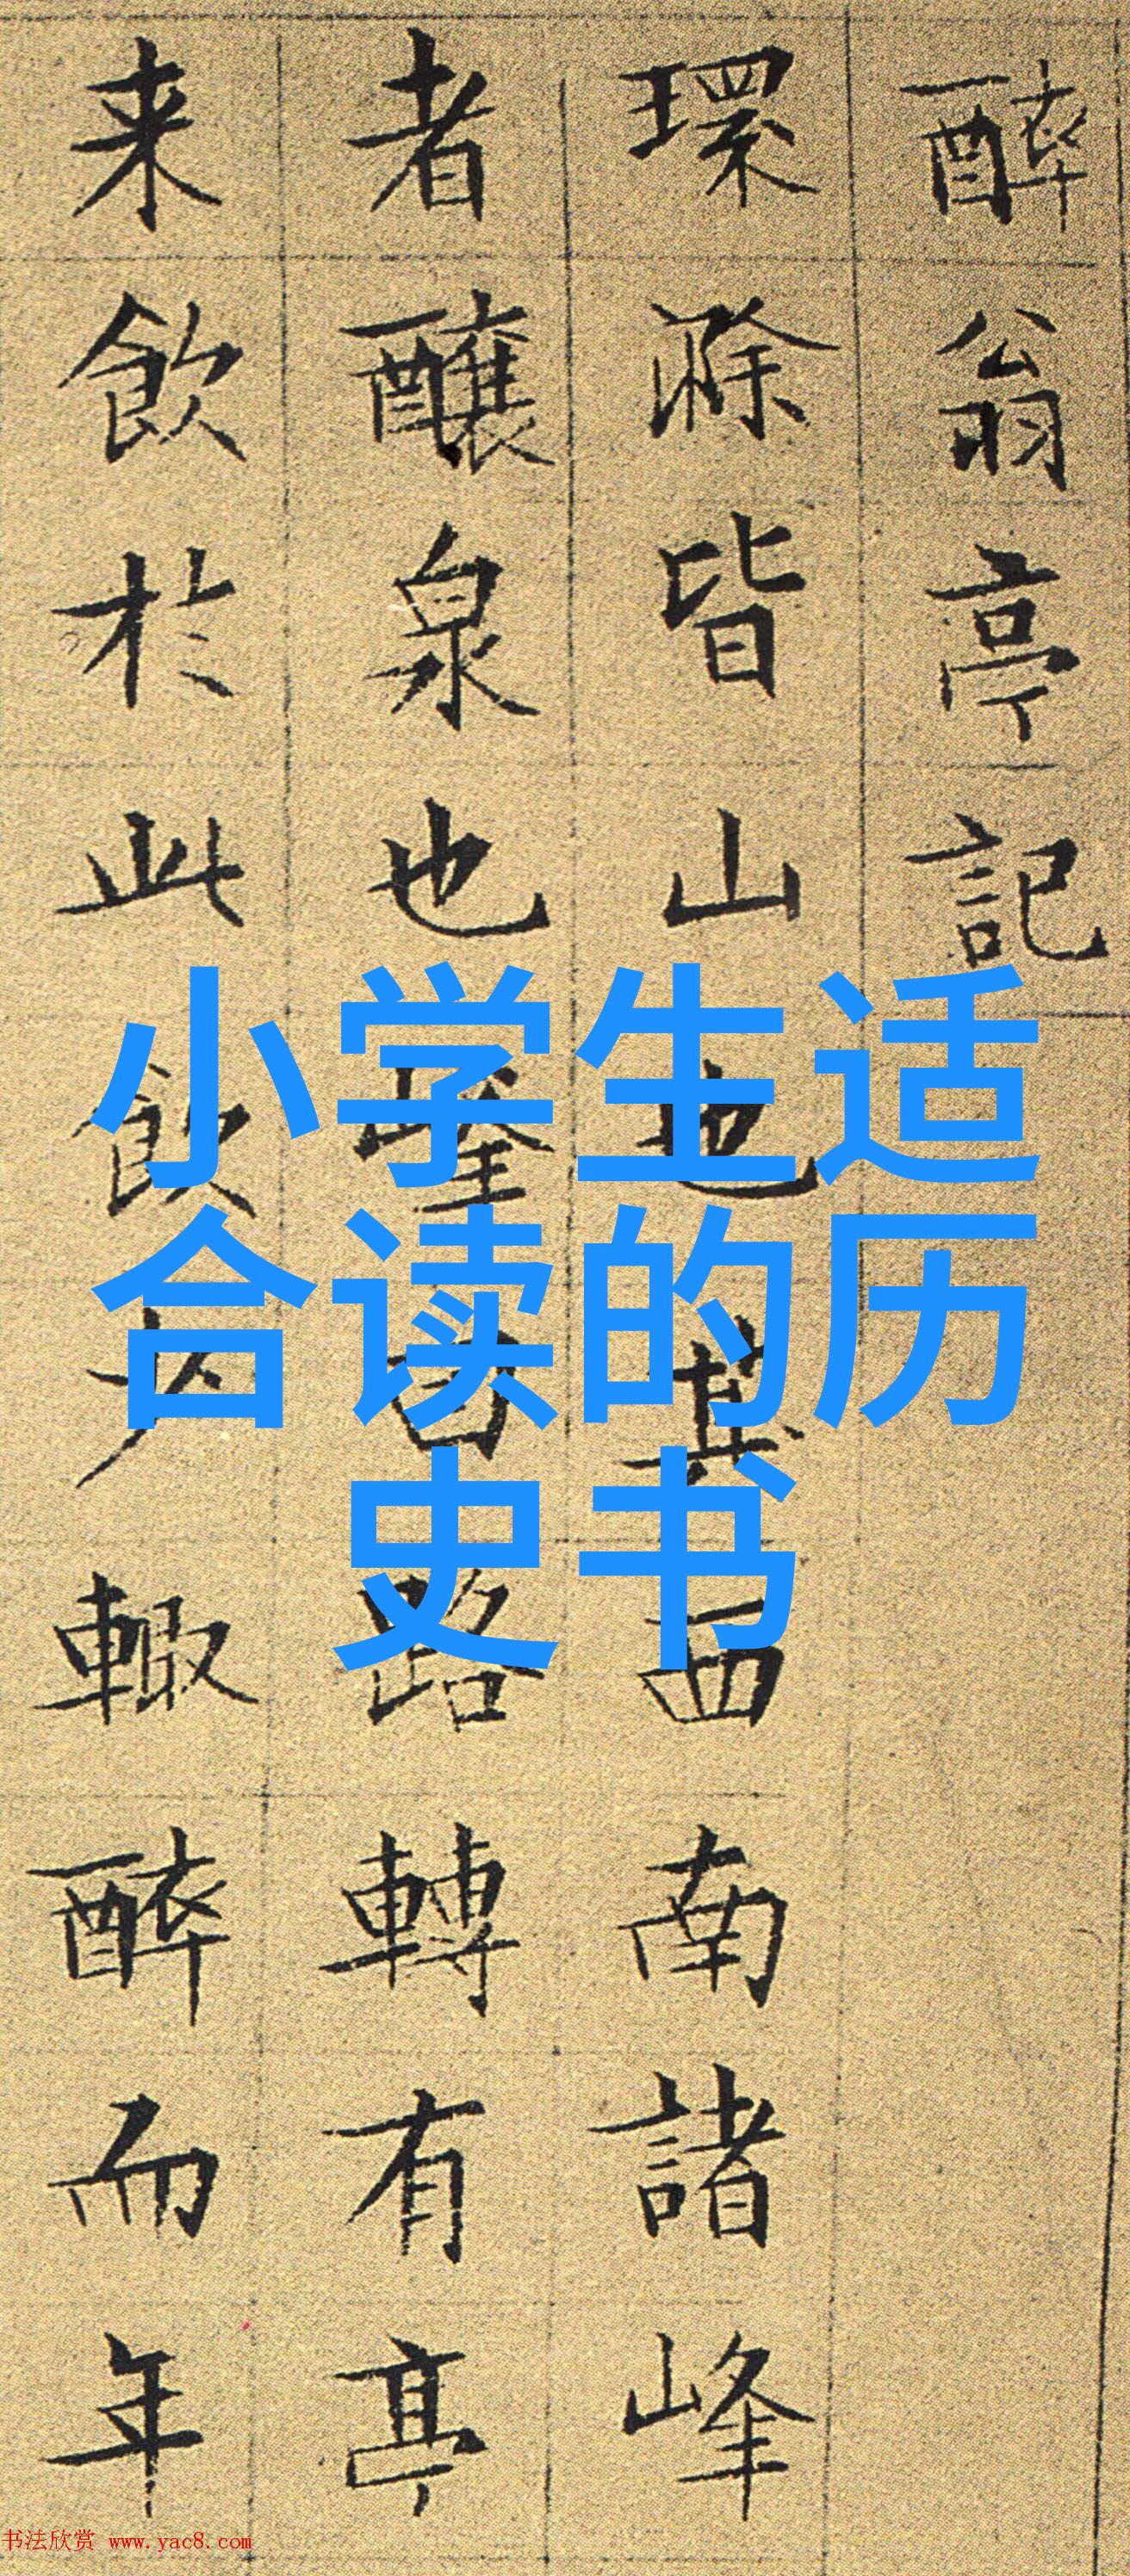 醉翁亭記
環滁皆山也其西南諸峰
者釀泉也回路轉有亭
来飲於此飲少輒醉而年
小学生适
合读的历
史书
书法欣赏 www.yac8.com